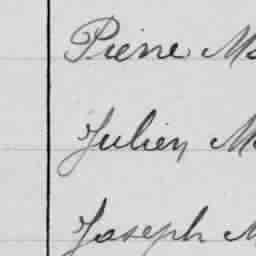 Pierre
Julien
Joseph